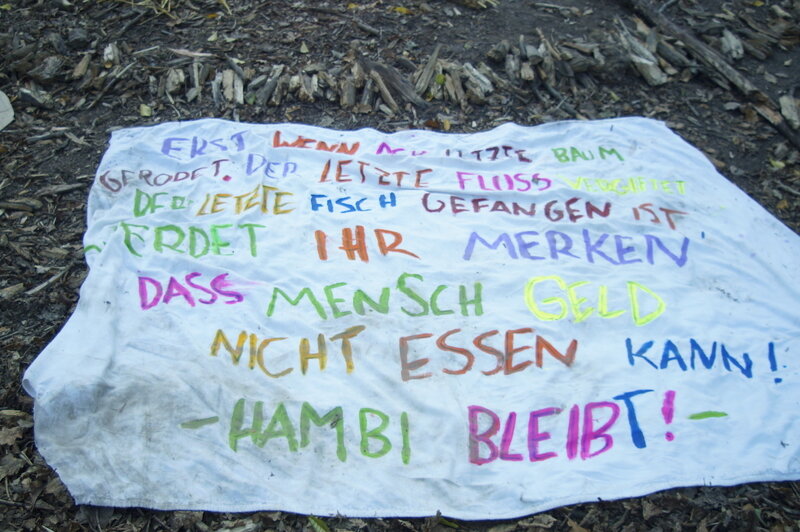 ERST WENN DER LETZTE BAUM
GERODET. DER LETZTE FLUSS VERGIFTET
DER LETZTE FISCH GEFANGEN IST
ERDET IHR MERKEN
DASS MENSCH GELD
NICHT ESSEN KANN!
- HAMBI BLEIBT! -